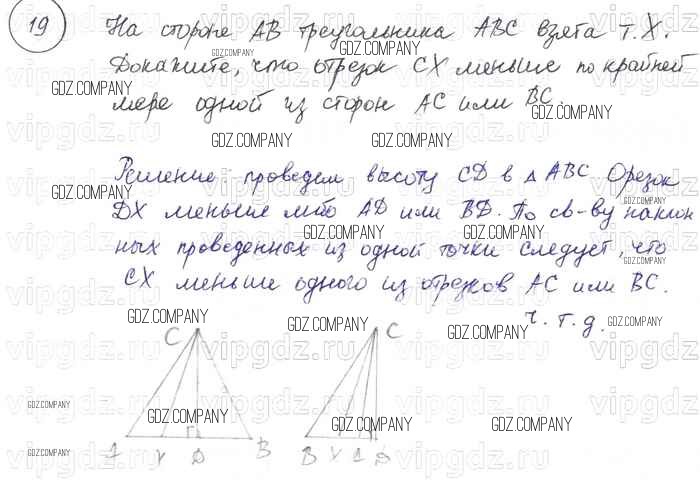 19 На стороне AB треугольника ABC взята т. X.
Докажите, что отрезок CX меньше по крайней
мере одной из сторон AC или BC.
Решение проведем высоту CD в △ ABC. Орезок
DX меньше либо AD или BD. По св-ву наклон
ных проведенных из одной точки следует, что
CX меньше одного из отрезков AC или BC.
ч. т. д.
C C
A X D B B X A D
GDZ.COMPANY
vipgdz.ru